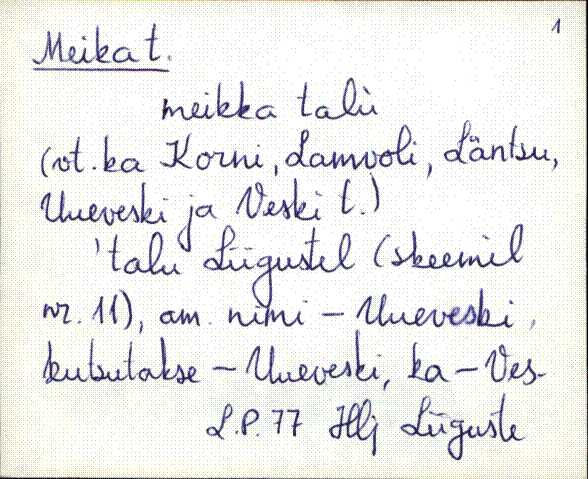 1
Meika t.
meikka talù
(vt. ka Korni, Lamvoli, Läntsu,
Uueveski ja Veski t.)
'talu Liigustel (skeemil
nr. 11), am. nimi – Uueveski,
kutsutakse – Uueveski, ka – Ves-
L.P. 77 Hlj Liiguste